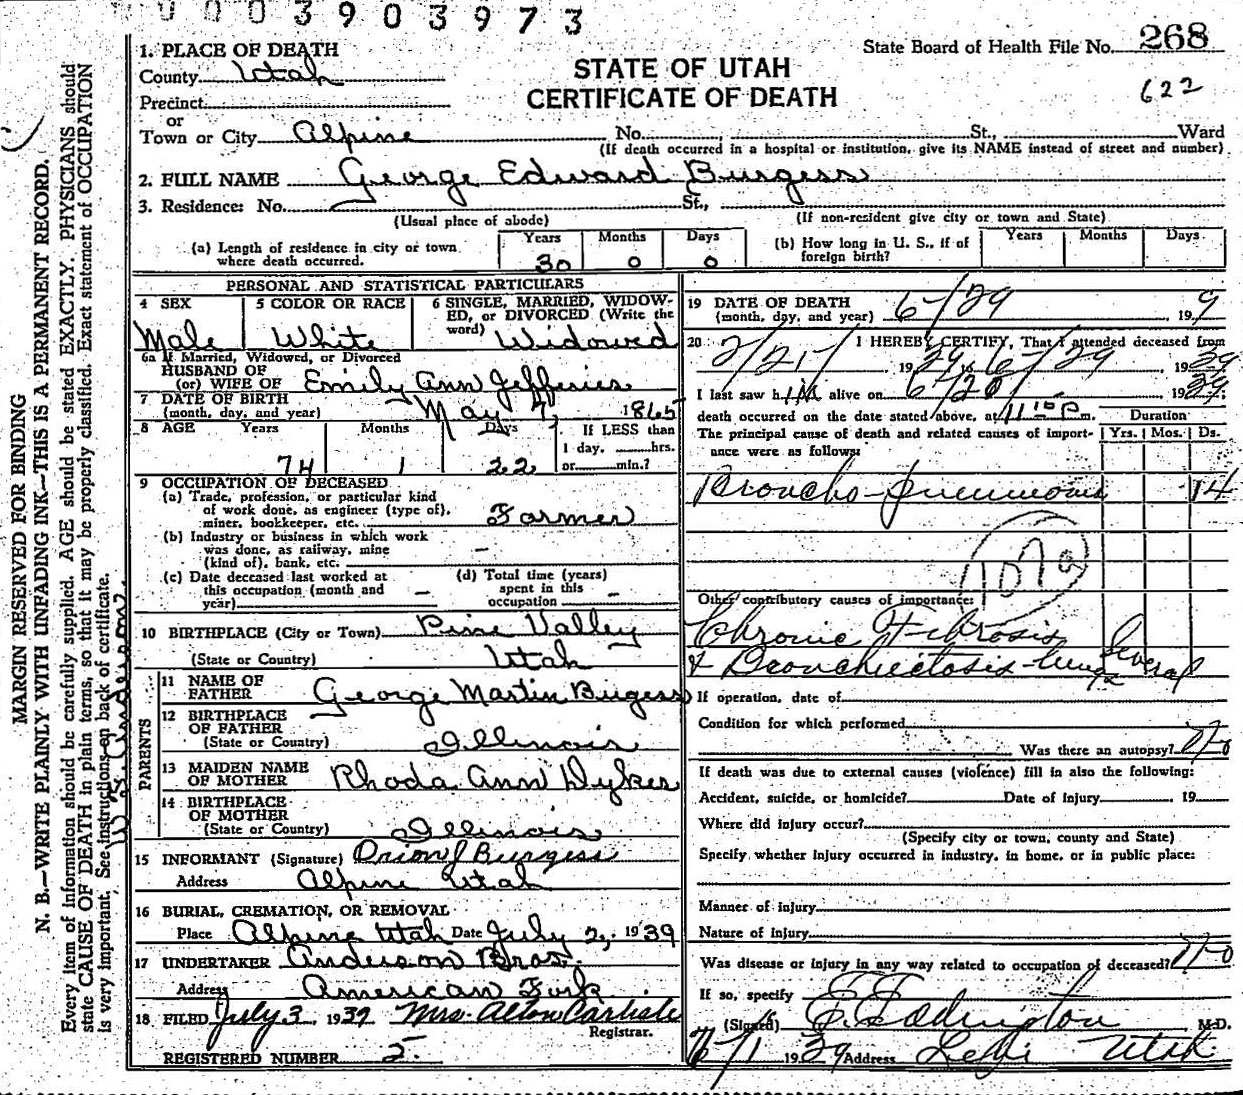 0003903973
State Board of Health File No. 268
622
STATE OF UTAH
CERTIFICATE OF DEATH
1. PLACE OF DEATH
County Utah
Precinct
or
Town or City Alpine No. St., Ward
(If death occurred in a hospital or institution, give its NAME instead of street and number)
2. FULL NAME George Edward Burgess
3. Residence: No. St.,
(Usual place of abode) (If non-resident give city or town and State)
(a) Length of residence in city or town where death occurred. Years 30 Months 0 Days 0
(b) How long in U. S., if of foreign birth? Years Months Days
PERSONAL AND STATISTICAL PARTICULARS
4 SEX Male
5 COLOR OR RACE White
6 SINGLE, MARRIED, WIDOWED, or DIVORCED (Write the word) Widowed
6a If Married, Widowed, or Divorced
HUSBAND OF
(or) WIFE OF Emily Ann Jefferies
7 DATE OF BIRTH
(month, day, and year) May 7, 1865
8 AGE Years 74 Months 1 Days 22
If LESS than 1 day, hrs. or min.?
9 OCCUPATION OF DECEASED
(a) Trade, profession, or particular kind of work done, as engineer (type of), miner, bookkeeper, etc. Farmer
(b) Industry or business in which work was done, as railway, mine (kind of), bank, etc. –
(c) Date deceased last worked at this occupation (month and year) –
(d) Total time (years) spent in this occupation –
10 BIRTHPLACE (City or Town) Pine Valley
(State or Country) Utah
PARENTS
11 NAME OF FATHER George Martin Burgess
12 BIRTHPLACE OF FATHER
(State or Country) Illinois
13 MAIDEN NAME OF MOTHER Rhoda Ann Dykes
14 BIRTHPLACE OF MOTHER
(State or Country) Illinois
15 INFORMANT (Signature) Orion J Burgess
Address Alpine Utah
16 BURIAL, CREMATION, OR REMOVAL
Place Alpine Utah Date July 2, 1939
17 UNDERTAKER Anderson Bros.
Address American Fork
18 FILED July 3, 1939 Mrs. Alton Carlisle
Registrar.
REGISTERED NUMBER 5.
19 DATE OF DEATH
(month, day, and year) 6/29 , 19 9
20 I HEREBY CERTIFY, That I attended deceased from
2/21/ , 1939 to 6/29 , 1939
I last saw him alive on 6/28/ , 1939;
death occurred on the date stated above, at 11 10 P m.
Duration
The principal cause of death and related causes of importance were as follows: Yrs. Mos. Ds.
Broncho-pneumonia 14
107a
Other contributory causes of importance:
Chronic Fibrosis
& Bronchiectosis lungs Several
If operation, date of
Condition for which performed
Was there an autopsy? No
If death was due to external causes (violence) fill in also the following:
Accident, suicide, or homicide? Date of injury , 19
Where did injury occur?
(Specify city or town, county and State)
Specify whether injury occurred in industry, in home, or in public place:
Manner of injury
Nature of injury
Was disease or injury in any way related to occupation of deceased? No
If so, specify
(Signed) E. Eddington , M.D.
7/1 1939 Address Lehi Utah.
MARGIN RESERVED FOR BINDING
N. B.—WRITE PLAINLY WITH UNFADING INK—THIS IS A PERMANENT RECORD.
Every item of information should be carefully supplied. AGE should be stated EXACTLY. PHYSICIANS should
state CAUSE OF DEATH in plain terms, so that it may be properly classified. Exact statement of OCCUPATION
is very important. See instructions on back of certificate.